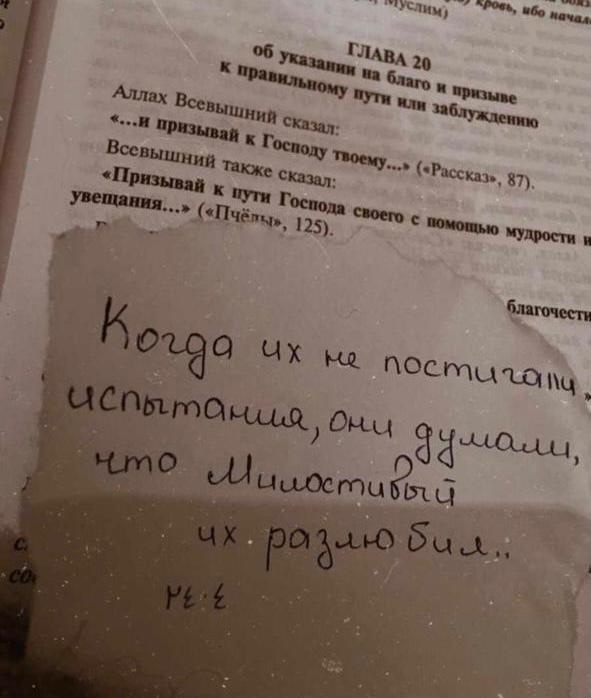 Муслим)
кровь, ибо
ГЛАВА 20
об указании на благо и призыве
к правильному пути или заблуждению
Аллах Всевышний сказал:
«...и призывай к Господу твоему...» («Рассказ», 87).
Всевышний также сказал:
«Призывай к пути Господа своего с помощью мудрости и
увещания...» («Пчёлы», 125).
Когда их не постигали
испытания, они думали,
что Милостивый
их разлюбил..